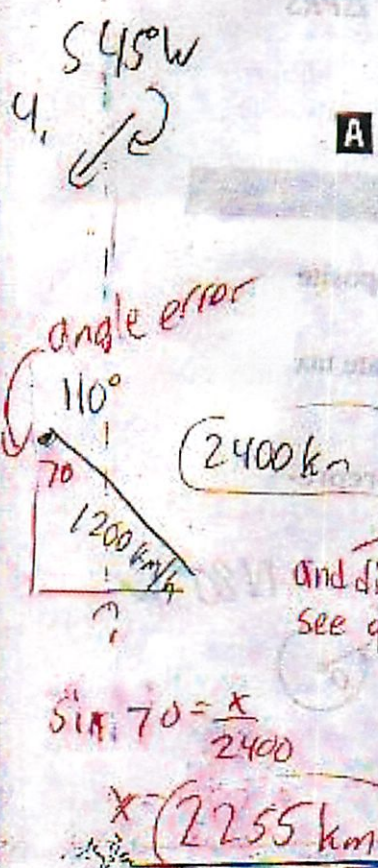 S 45°W
4.
A
angle error
110°
70
2400 km
1200 km/h
?
and di
see
sin 70 = x/2400
x 2255 km